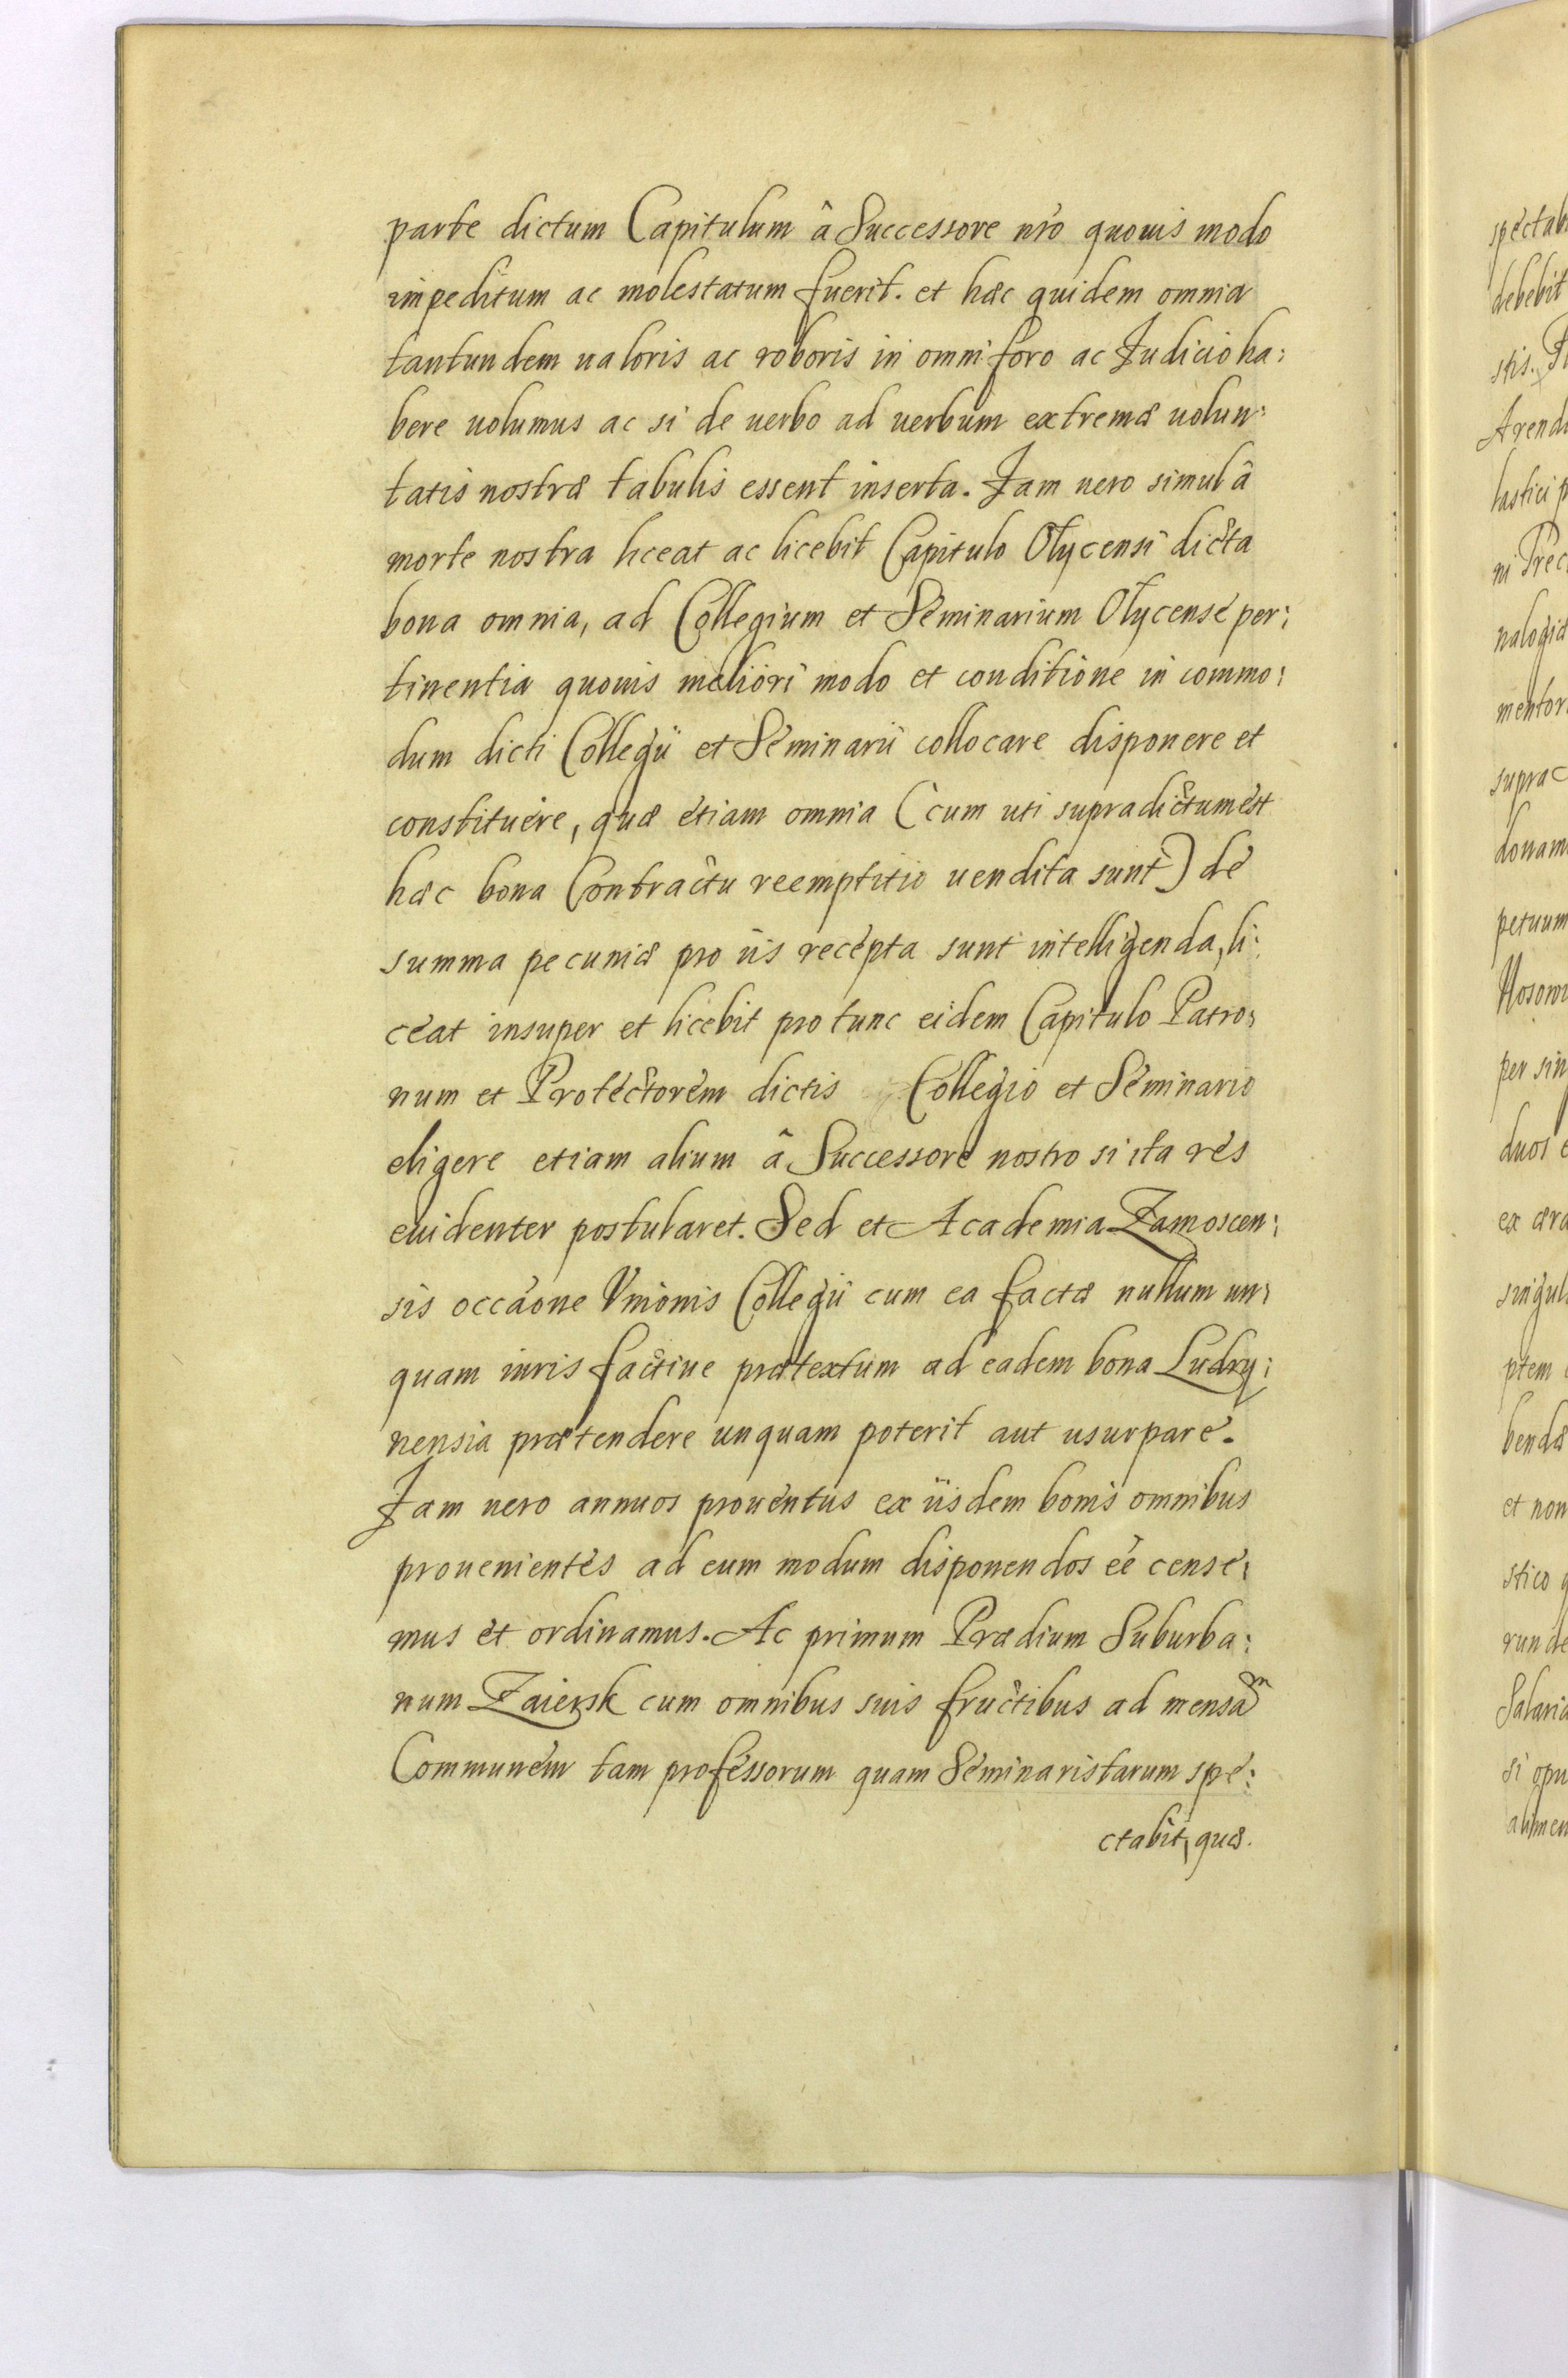 parte dictum Capitulum â Successore nr̃o quouis modo
impeditum ac molestatum fuerit. et hæc quidem omnia
tantundem ualoris ac roboris in omni foro ac Judicio ha:
bere uolumus ac si de uerbo ad uerbum extremæ uolun:
tatis nostræ tabulis essent inserta. Jam uero simul â
morte nostra liceat ac licebit Capitulo Olycensi dicta
bona omnia, ad Collegium et Seminarium Olycense per:
tinentia quouis meliori modo et conditione in commo:
dum dicti Collegii et Seminarii collocare disponere et
constituere, quæ etiam omnia (cum uti supradictum est
hæc bona Contractu reemptitio uendita sunt) de
summa pecuniæ pro iis recepta sunt intelligenda, li:
ceat insuper et licebit pro tunc eidem Capitulo Patro:
num et Protectorem dictis Collegio et Seminario
eligere etiam alium â Successore nostro si ita res
euidenter postularet. Sed et Academia Zamoscen:
sis occãone Vnionis Collegii cum ea factæ nullum un:
quam iuris factiue prætextum ad eadem bona Ludry:
nensia prætendere unquam poterit aut usurpare.
Jam uero annuos prouentus ex iisdem bonis omnibus
prouenientes ad eum modum disponendos ẽe cense:
mus et ordinamus. Ac primum Prædium Suburba:
num Zaiersk cum omnibus suis fructibus ad mensam
Communem tam professorum quam Seminaristarum spe:
ctabit, quæ.
spectab
debebit
stis.
Arend
lastici p
nalogia
mentor
suprac
donam
petuum
per sin
duos e
ex æra
singul
ptem
bendæ
et non
stico q
runde
Salaria
si opu
alimen